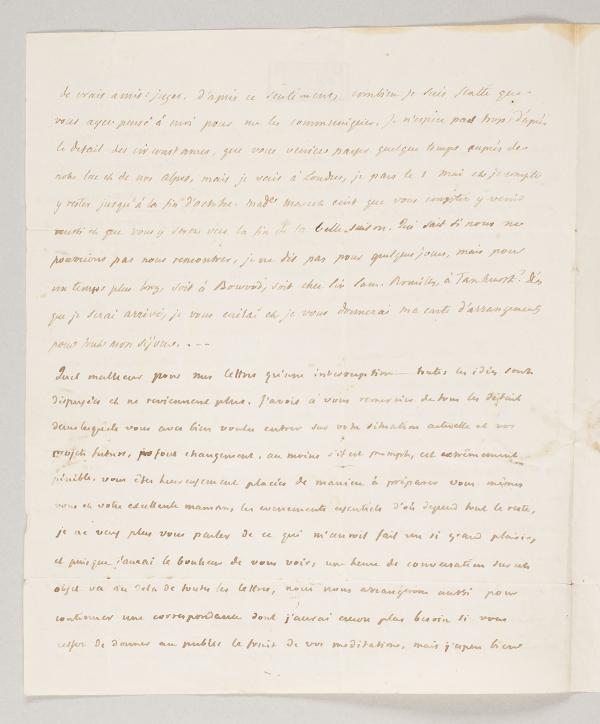 de vrais amis: jugez, d'après ce sentiment, combien je suis flatté que
vous ayez pensé à moi pour me les communiquer. Je n'espère pas trop, d'après
le detail des circonstances, que vous veniez passer quelque temps auprès de
notre lac et de nos alpes, mais je vais à Londres, je pars le 1 mai et je compte
y rester jusqu'à la fin d'octobre. Made Marcet ecrit que vous comptiez y venir
aussi et que vous y serez vers la fin de la belle saison. Qui sait si nous ne
pourrions pas nous rencontrer, je ne dis pas pour quelques jours, mais pour
un temps plus long, soit à Bowood, soit chez Sir Sam. Romilly, à Tanhurst? Dès
que je serai arrivé, je vous ecrirai et je vous donnerai ma carte d'arrangements
pour tout mon séjour. . --
Quel malheur pour mes lettres qu'une interruption — toutes les idées sont
dispersées et ne reviennent plus. J'avois à vous remercier de tous les détails
dans lesquels vous avez bien voulu entrer sur votre situation actuelle et vos
projets futurs, tout changement, au moins s'il est prompt, est extrêmement
pénible. vous êtes heureusement placées de manière à préparer vous-mêmes
vous et votre excellente maman, les evenements essentiels d'où depend tout le reste,
je ne veux plus vous parler de ce qui m'auroit fait un si grand plaisir,
et puisque j'aurai le bonheur de vous voir, une heure de conversation sur cet
objet va au delà de toutes les lettres, nous nous arrangerons aussi pour
continuer une correspondance dont j'aurai encor plus besoin si vous
cessez de donner au public le fruit de vos meditations, mais j'espere bien